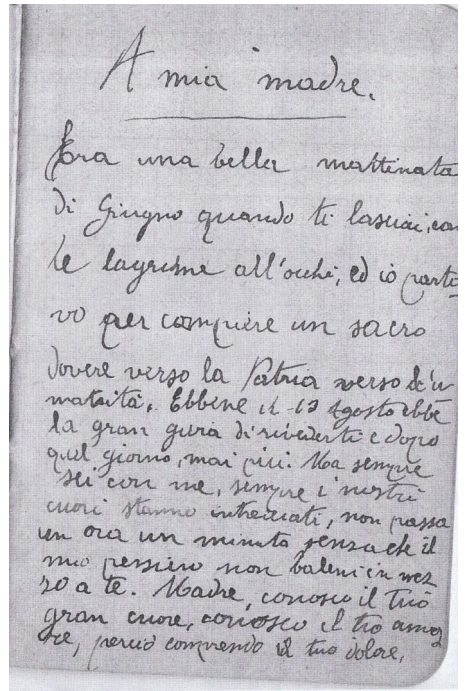 A mia madre.
Era una bella mattinata
di Giugno quando ti lasciai, con
le lagrime all'occhi, ed io parti-
vo per compiere un sacro
dovere verso la Patria verso
Ebbene il 13 Agosto ebbe
la gran di rivederti e dopo
quel giorno, mai più. Ma sempre
sei con me, sempre i nostri
cuori stanno intrecciati, non passa
un ora un minuto senza che il
mio pensiero non baleni in mez
zo a te. Madre, conosco il tuo
gran cuore, conosco il tuo amo
re, perciò comprendo il tuo dolore,